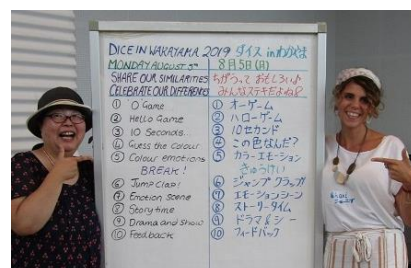 DICE IN WAKAYAMA 2019 ダイス in わかやま
MONDAY AUGUST 5th 8月5日(月)
SHARE OUR SIMILARITIES ちがうって おもしろい♪
CELEBRATE OUR DIFFERENCES みんなステキだよね
① O Game
② Hello Game
③ 10 Seconds...
④ Guess the Colour
⑤ Colour emotions
BREAK!
⑥ Jump Clap!
⑦ Emotion Scene
⑧ Storytime
⑨ Drama and Show
⑩ Feedback
① オーゲーム
② ハローゲーム
③ 10セカンド
④ この色なんだ?
⑤ カラーエモーション
きゅうけい
⑥ ジャンプクラップ
⑦ エモーションシーン
⑧ ストーリータイム
⑨ ドラマ&シー
⑩ フィードバック